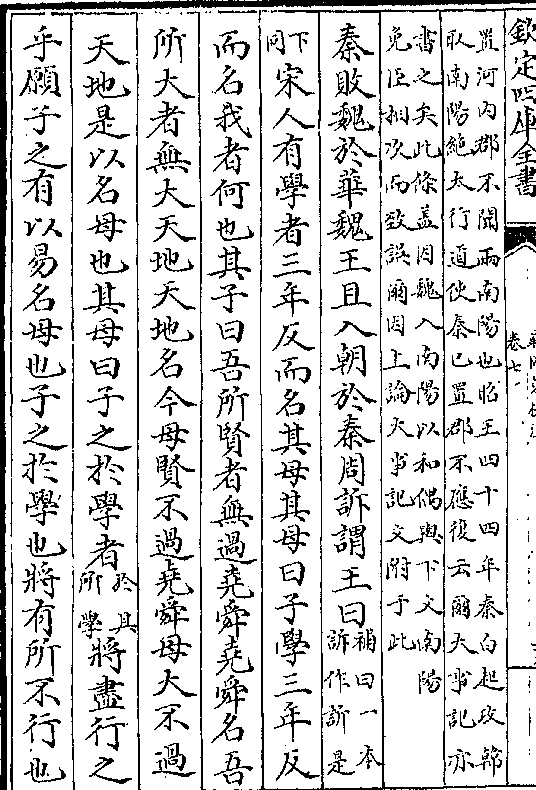 欽定四庫全書
卷七
置河内郡不聞兩南陽也昭王四十四年秦白起攻韓
取南陽絶太行道使秦已置郡不應復云爾大事記亦
書之矣此條蓋因魏入南陽以和偶與下文南陽
免臣相次而致誤爾因上論大事記文附于此
秦敗魏於華魏王且入朝於秦周訴謂王曰補曰一本訴作訢是
下同宋人有學者三年反而名其母其母曰子學三年反
而名我者何也其子曰吾所賢者無過堯舜堯舜名吾
所大者無大天地天地名今母賢不過堯舜母大不過
天地是以名母也其母曰子之於學者於其所學將盡行之
乎願子之有以易名母也子之於學也將有所不行也